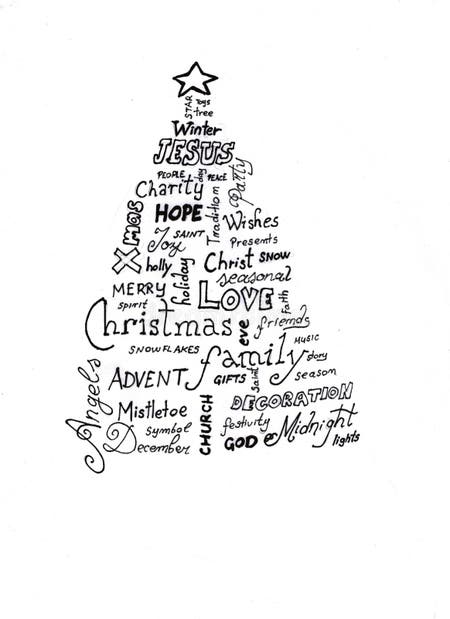 STAR
Toys
tree
Winter
JESUS
PEOPLE
PEACE
Charity
Party
Xmas
HOPE
Tradition
Wishes
SAINT
Joy
Presents
holly
holiday
Christ SNOW
seasonal
MERRY
LOVE
faith
spirit
Christmas
eve
friends
MUSIC
SNOWFLAKES
family
story
Angels
ADVENT
GIFTS
Saint
season
DECORATION
Mistletoe
CHURCH
symbol
festivity
Midnight
December
GOD
lights